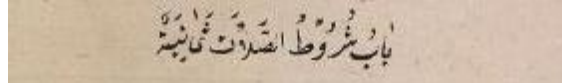 بَابُ شُرُوْطُ الصَّلَاتْ ثَمَانِيَةٌ